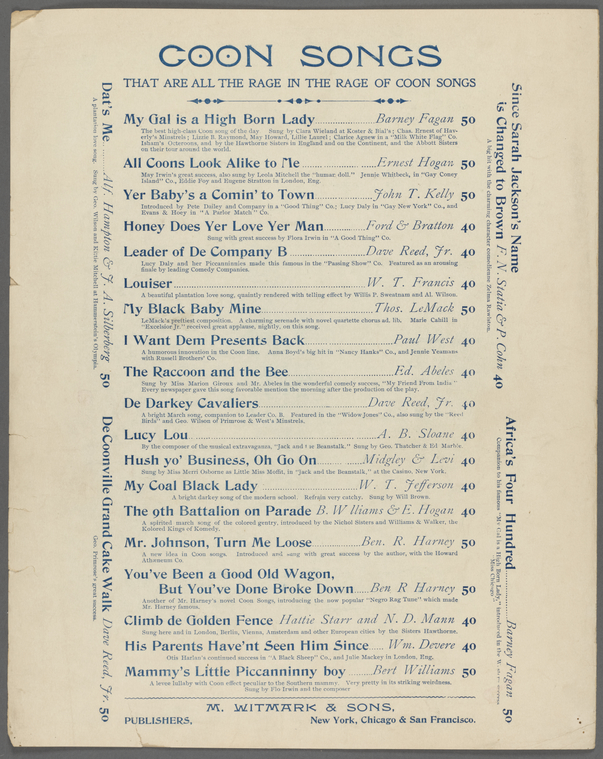 COON SONGS
THAT ARE ALL THE RAGE IN THE RAGE OF COON SONGS
My Gal is a High Born Lady Barney Fagan 50
The best high-class Coon song of the day. Sung by Clara Wieland at Koster & Bial's; Chas. Ernest of Hav-
erly's Minstrels; Lizzie B. Raymond, May Howard, Lillie Laurel; Clarice Agnew in a "Milk White Flag" Co.
Isham's Octoroons, and by the Hawthorne Sisters in England and on the Continent, and the Abbott Sisters
on their tour around the world.
All Coons Look Alike to Me Ernest Hogan 50
May Irwin's great success, also sung by Leola Mitchell the "human doll." Jennie Whitbeck, in "Gay Coney
Island" Co., Eddie Foy and Eugene Stratton in London, Eng.
Yer Baby's a Comin' to Town John T. Kelly 50
Introduced by Pete Dailey and Company in a "Good Thing" Co.; Lucy Daly in "Gay New York" Co., and
Evans & Hoey in "A Parlor Match" Co.
Honey Does Yer Love Yer Man Ford & Bratton 40
Sung with great success by Flora Irwin in "A Good Thing" Co.
Leader of De Company B Dave Reed, Jr. 40
Lucy Daly and her Piccaninnies made this famous in the "Passing Show" Co. Featured as an arousing
finale by leading Comedy Companies.
Louiser W. T. Francis 40
A beautiful plantation love song, quaintly rendered with telling effect by Willis P. Sweatnam and Al. Wilson.
My Black Baby Mine Thos. LeMack 50
LeMack's prettiest composition. A charming serenade with novel quartette chorus ad. lib. Marie Cahill in
"Excelsior Jr." received great applause, nightly, on this song.
I Want Dem Presents Back Paul West 40
A humorous innovation in the Coon line. Anna Boyd's big hit in "Nancy Hanks" Co., and Jennie Yeamans
with Russell Brothers' Co.
The Raccoon and the Bee Ed. Abeles 40
Sung by Miss Marion Giroux and Mr. Abeles in the wonderful comedy success, "My Friend From India"
Every newspaper gave this song favorable mention the morning after the production of the play.
De Darkey Cavaliers Dave Reed, Jr. 40
A bright March song, companion to Leader Co. B. Featured in the "Widow Jones" Co., also sung by the "Reed
Birds" and Geo. Wilson of Primrose & West's Minstrels.
Lucy Lou A. B. Sloane 40
By the composer of the musical extravaganza, "Jack and the Beanstalk." Sung by Geo. Thatcher & Ed. Marble.
Hush yo' Business, Oh Go On Midgley & Levi 40
Sung by Miss Merri Osborne as Little Miss Moffit, in "Jack and the Beanstalk," at the Casino, New York.
My Coal Black Lady W. T. Jefferson 40
A bright darkey song of the modern school. Refrain very catchy. Sung by Will Brown.
The 9th Battalion on Parade B. Williams & E. Hogan 40
A spirited march song of the colored gentry, introduced by the Nichol Sisters and Williams & Walker, the
Kolored Kings of Komedy.
Mr. Johnson, Turn Me Loose Ben. R. Harney 50
A new idea in Coon songs. Introduced and sung with great success by the author, with the Howard
Athenæum Co.
You've Been a Good Old Wagon,
But You've Done Broke Down Ben R Harney 50
Another of Mr. Harney's novel Coon Songs, introducing the now popular "Negro Rag Time" which made
Mr. Harney famous.
Climb de Golden Fence Hattie Starr and N. D. Mann 40
Sung here and in London, Berlin, Vienna, Amsterdam and other European cities by the Sisters Hawthorne.
His Parents Have'nt Seen Him Since Wm. Devere 40
Otis Harlan's continued success in "A Black Sheep" Co., and Julie Mackey in London, Eng.
Mammy's Little Piccanninny boy Bert Williams 50
A levee lullaby with Coon effect peculiar to the Southern mammy. Very pretty in its striking weirdness.
Sung by Flo Irwin and the composer
M. WITMARK & SONS,
PUBLISHERS, New York, Chicago & San Francisco.
Dat's Me Alf. Hampton & J. A. Silberberg 50
A plantation love song. Sung by Geo. Wilson and Kittie Mitchell at Hammerstein's Olympia.
De Coonville Grand Cake Walk Dave Reed, Jr. 50
Geo. Primrose's great success.
Since Sarah Jackson's Name
is Changed to Brown F. N. Statia & P. Cohn 40
A big hit with the charming character comedienne Zelma Rawlston.
Africa's Four Hundred Barney Fagan 50
Companion to his famous "My Gal is a High Born Lady," introduced in the
"Miss Chicago"